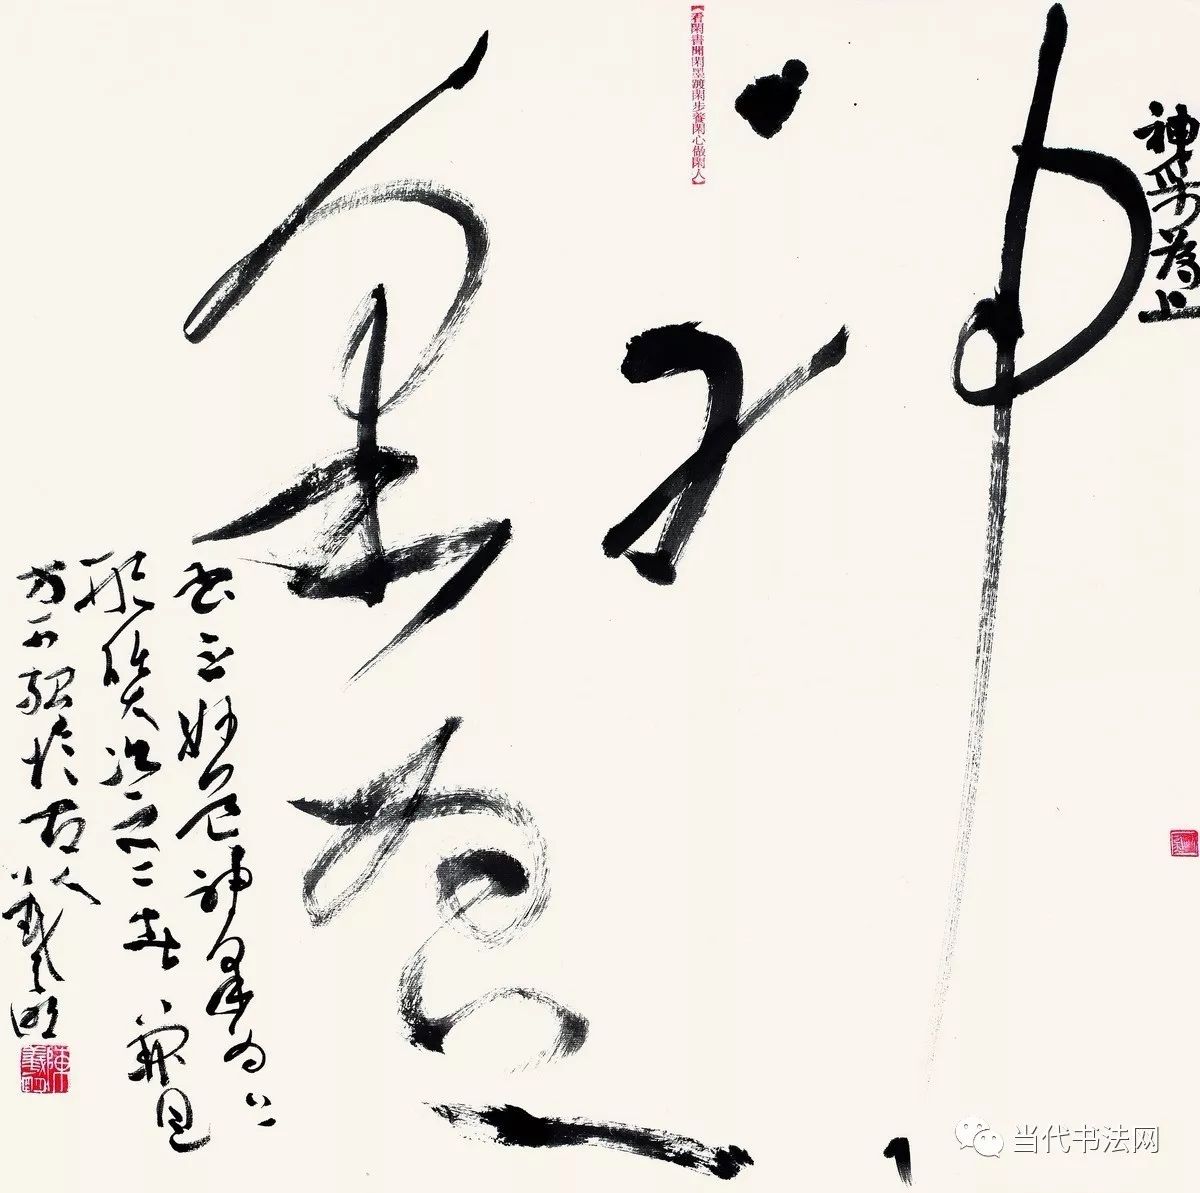 神采為上
神采為上
【看閑書聞閑墨踱閑步養閑心做閑人】
书之妙道神采为上
形质次之二者兼具
方可紹於古人羲明
陳羲明
当代书法网